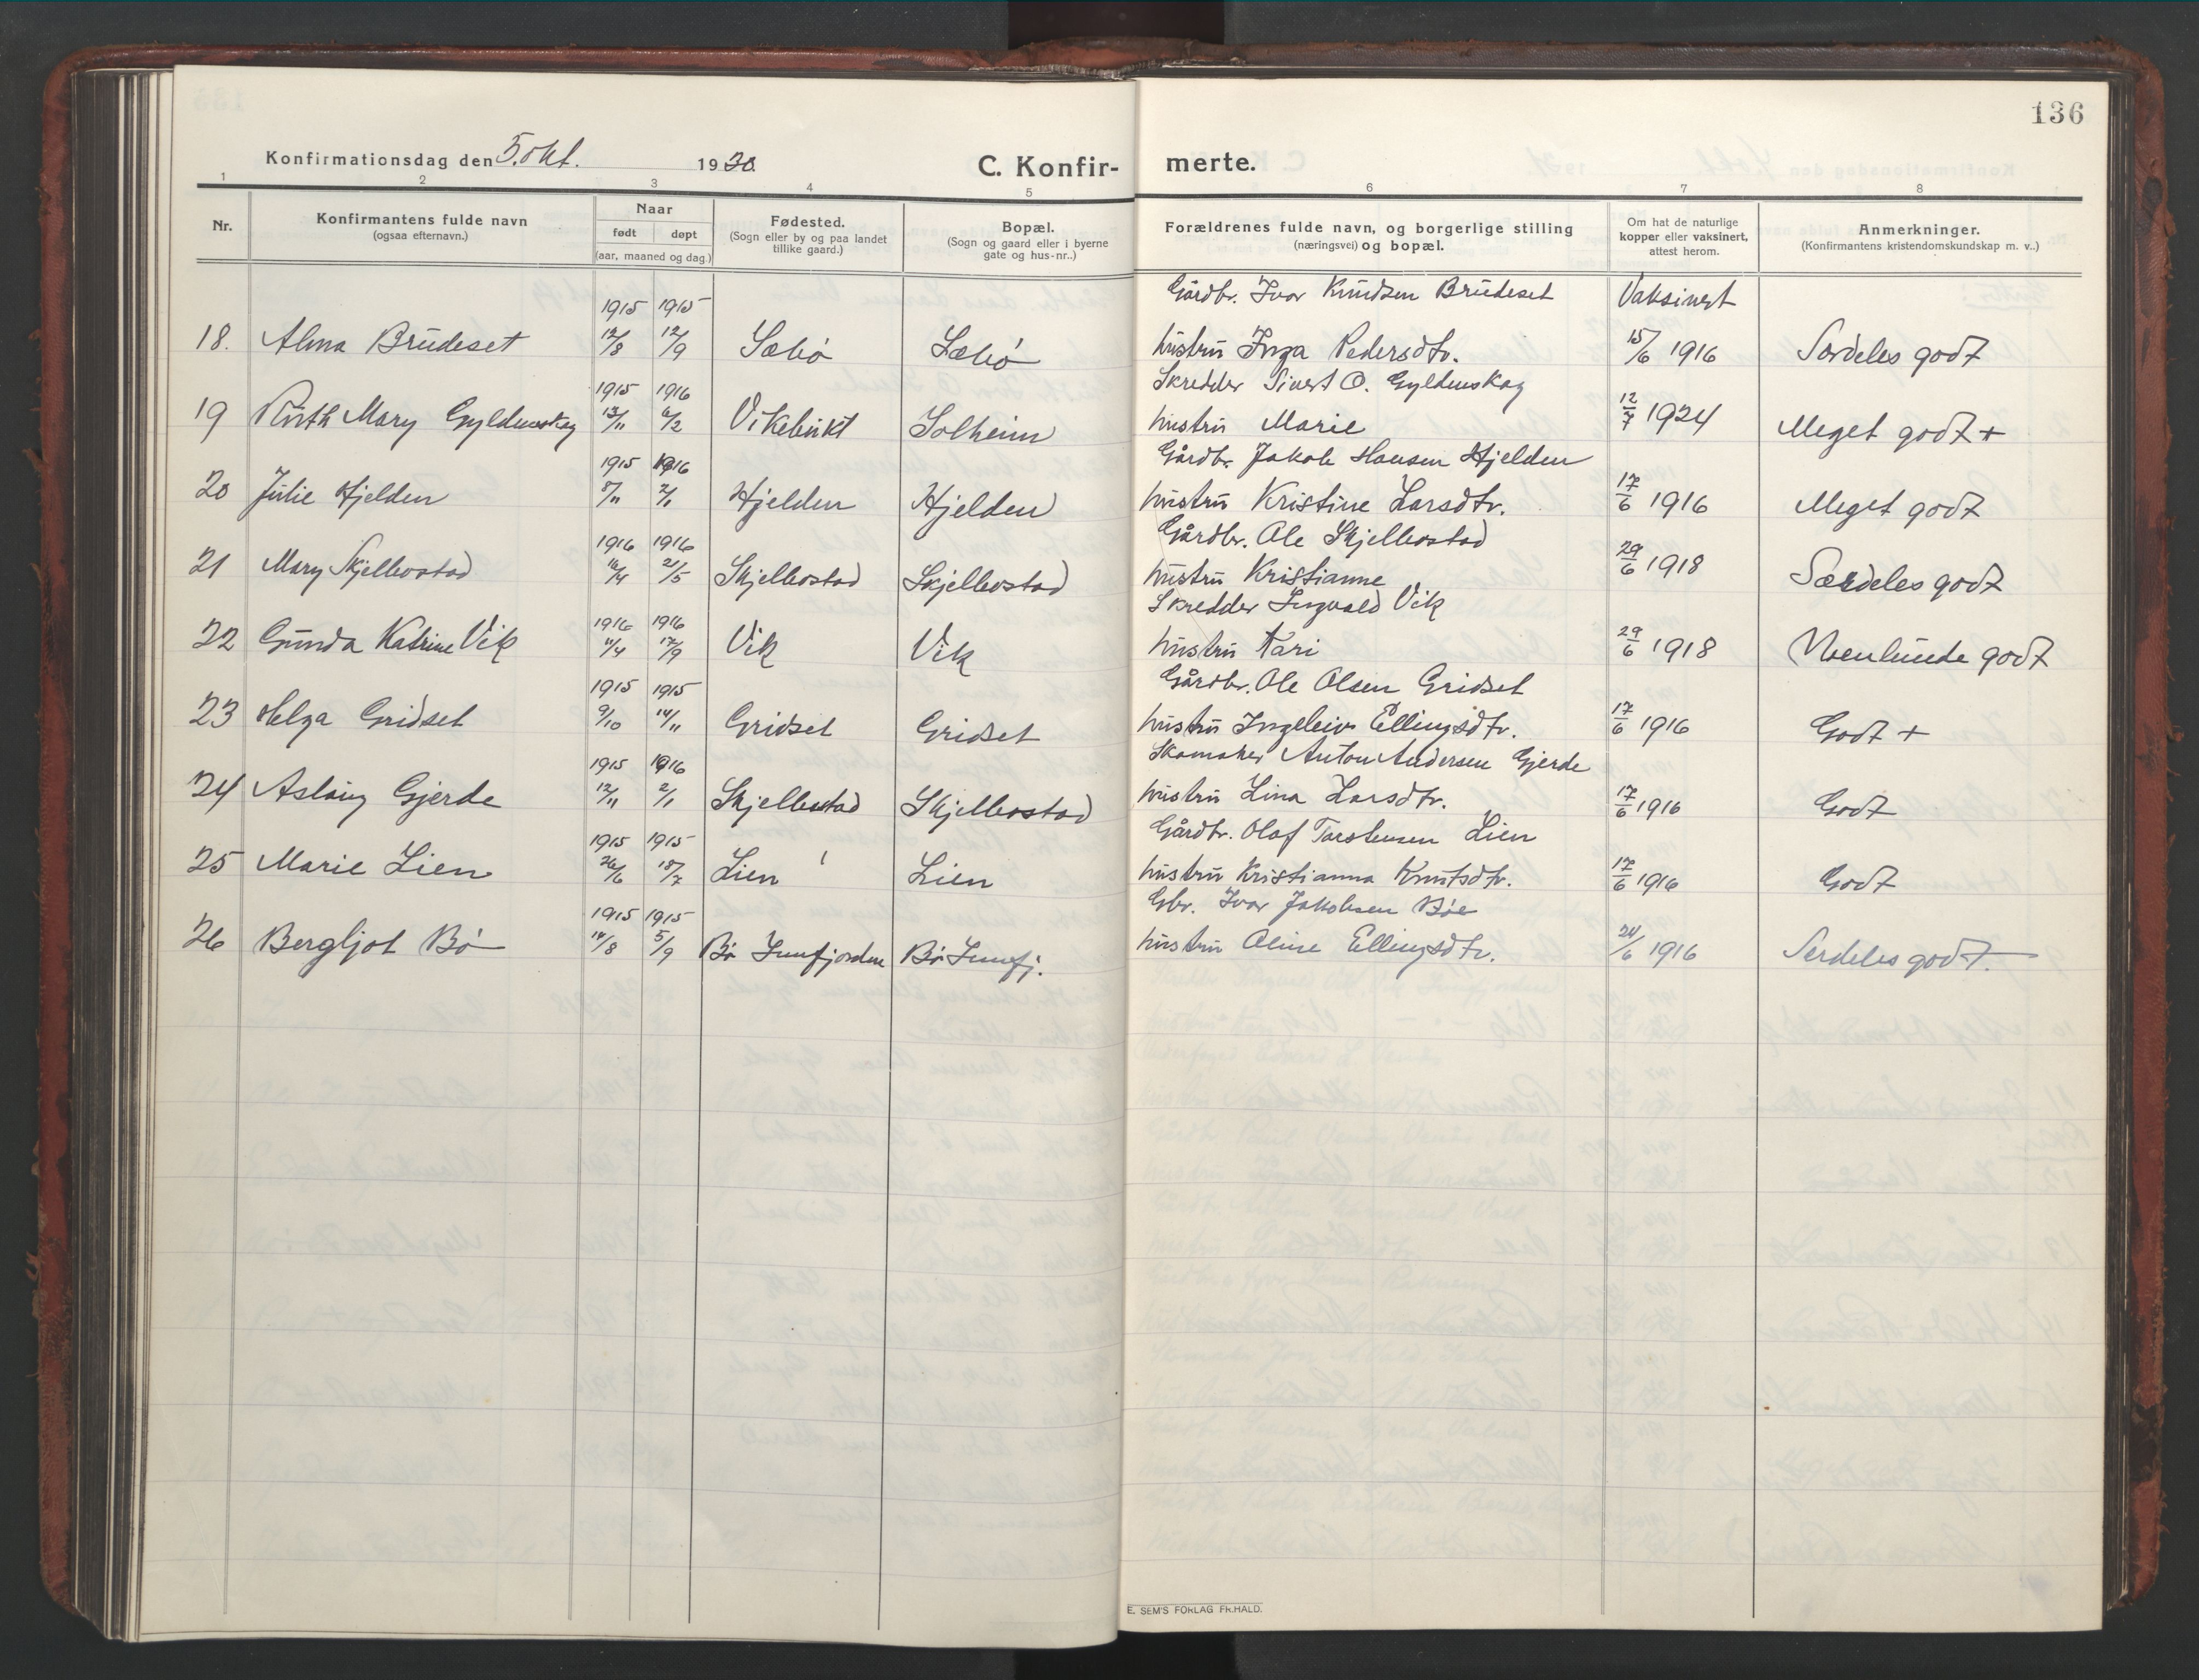 136
Konfirmationsdag den 5. okt. 1930. C. Konfirmerte.
1 2 3 4 5 6 7 8
Nr.
Konfirmantens fulde navn
(ogsaa efternavn.)
Naar
født døpt
(aar, maaned og dag.)
Fødested.
(Sogn eller by og paa landet
tillike gaard.)
Bopæl.
(Sogn og gaard eller i byerne
gate og hus-nr..)
Forældrenes fulde navn, og borgerlige stilling
(næringsvei) og bopæl.
Om hat de naturlige
kopper eller vaksinert,
attest herom.
Anmerkninger.
(Konfirmantens kristendomskundskap m. v..)
1915 1915 Gårdbr. Ivar Knudsen Brudeset Vaksinert
18. Alma Brudeset 12/8 12/9 Sæbø Sæbø hustru Inga Pedersdtr. 15/6 1916 Særdeles godt
1915 1916 Skredder Sivert O. Gyldenskog
19 Ruth Mary Gyldenskog 13/11 6/2 Vikebukt Solheim hustru Marie 12/7 1924 Meget godt +
1915 1916 Gårdbr. Jakob Hansen Hjelden
20 Julie Hjelden 8/11 2/1 Hjelden Hjelden hustru Kristine Larsdtr. 17/6 1916 Meget godt
1916 1916 Gårdbr. Ole Skjelbostad
21 Mary Skjelbostad 16/4 21/5 Skjelbostad Skjelbostad hustru Kristianne 29/6 1918 Særdeles godt
1916 1916 Skredder Ingvald Vik
22 Gunda Katrine Vik 11/4 17/9 Vik Vik hustru Kari 29/6 1918 Noenlunde godt
1915 1915 Gårdbr. Ole Olsen Gridset
23 Helga Gridset 9/10 14/11 Gridset Gridset hustru Ingeleiv Ellingsdtr. 17/6 1916 Godt +
1915 1916 Skomaker Anton Andersen Gjerde
24 Aslaug Gjerde 12/11 2/1 Skjelbostad Skjelbostad hustru Lina Larsdtr. 17/6 1916 Godt
1915 1915 Gårdbr. Olaf Torstensen Lien
25 Marie Lien 26/6 18/7 Lien Lien hustru Kristianna Knutsdtr. 17/6 1916 Godt
1915 1915 Gbr. Ivar Jakobsen Bøe
26 Bergljot Bø 14/8 5/9 Bø Innfjorden Bø Innfj. hustru Oline Ellingsdtr. 24/6 1916 Serdeles godt.
E. SEM'S FORLAG FR.HALD.